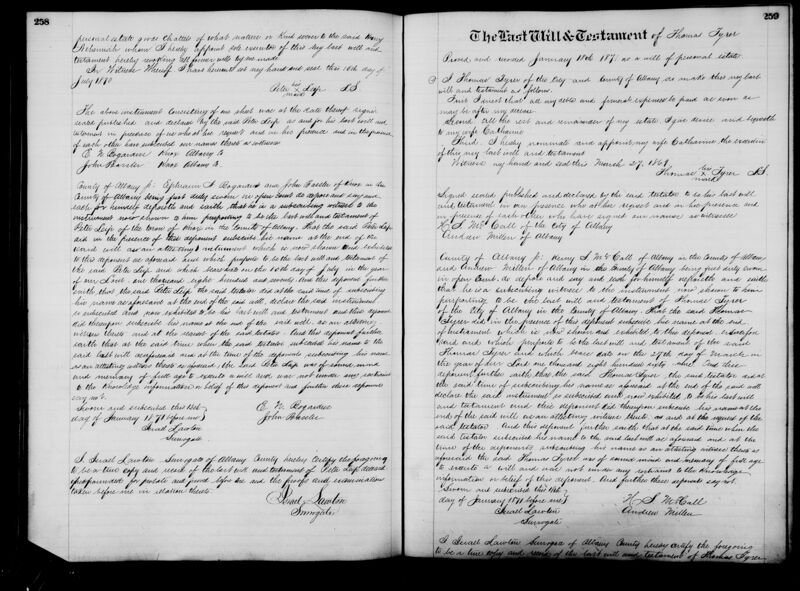 258
personal estate goods chattels of what nature or kind soever to the said Henry
whom I hereby appoint sole executor of this my last will and
testament hereby revoking all former wills by me made
In Witness Whereof I have hereunto set my hand and seal this 10th day of
July 1870
Peter his x mark Lip L.S.
The above instrument consisting of one sheet was at the date thereof signed
sealed published and declared by the said Peter Lip as and for his last will and
testament in presence of us who at his request and in his presence and in the presence
of each other have subscribed our names thereto as witnesses
E. W. Bogardus Knox Albany Co
John Knox Albany Co.
County of Albany ss: Ephraim Bogardus and John of Knox in the
County of Albany being first duly sworn in open Court do depose and say and
each for himself deposeth and saith that he is a subscribing witness to the
instrument now shown to him purporting to be the last will and testament of
Peter Lip of the town of Knox in the County of Albany. That the said Peter Lip
did in the presence of this deponent subscribe his name at the end of the
said will as an instrument which is now shown and exhibited
to this deponent as aforesaid and which purports to be the last will and testament of
the said Peter Lip and which bears date on the 10th day of July in the year
of our Lord one thousand eight hundred and seventy And this deponent further
saith that the said Peter Lip the said testator did at the said time of subscribing
his name as aforesaid at the end of the said will, declare the said instrument
so subscribed and now exhibited to be his last will and testament and this deponent
did thereupon subscribe his name at the end of the said will as an attesting
witness thereto and at the request of the said testator. And this deponent further
saith that at the said time when the said testator subscribed his name to the
said last will as aforesaid and at the time of the deponents subscribing his name
as an attesting witness thereto as aforesaid, the said Peter Lip was of sound mind
and memory of full age to execute a will and was not under any restraint
to the knowledge information or belief of this deponent and further these deponents
say not.
Sworn and subscribed this 18th
day of January 1871 before me
Israel Lawton
Surrogate
E. W. Bogardus
John
I Israel Lawton Surrogate of Albany County hereby certify the foregoing
to be a true copy and record of the last will and testament of Peter Lip deceased
for probate and proved before me and the proofs and examination
taken before me in relation thereto.
Israel Lawton
Surrogate
259
The Last Will & Testament of Thomas Tyror
Proved and recorded January 18th 1871 as a will of personal estate.
I Thomas Tyror of the City and County of Albany do make this my last
will and testament as follows.
First I direct that all my debts and funeral expenses be paid as soon as
may be after my decease
Second all the rest and remainder of my estate I give devise and bequeath
to my wife Catharine
Third I hereby nominate and appoint my wife Catharine the executrix
of this my last will and testament
Witness my hand and seal this March 27, 1869.
Thomas his x mark Tyror L.S.
Signed sealed published and declared by the said testator to be his last will
and testament in our presence who at his request and in his presence and
in presence of each other who have signed our names as witnesses
H. S. McCall of the City of Albany
Andrew Millen of Albany
County of Albany ss: Henry S McCall of Albany in the County of Albany
and Andrew Millen of Albany in the County of Albany being first duly sworn
in open Court do depose and say and each for himself deposeth and saith
that he is a subscribing witness to the instrument now shown to him
purporting to be the last will and testament of Thomas Tyror
of the City of Albany in the County of Albany. That the said Thomas
Tyror did in the presence of this deponent subscribe his name at the end
of instrument which is now shown and exhibited to this deponent as aforesaid
and which purports to be the last will and testament of the said
Thomas Tyror and which bears date on the 27th day of March in
the year of our Lord one thousand eight hundred sixty nine And this
deponent further saith that the said Thomas Tyror the said testator did at
the said time of subscribing his name as aforesaid at the end of the said will
declare the said instrument so subscribed and now exhibited to be his last will
and testament and this deponent did thereupon subscribe his name at the
end of the said will as an attesting witness thereto and at the request of the
said testator. And this deponent further saith that at the said time when the
said testator subscribed his name to the said last will as aforesaid and at the
time of the deponents subscribing his name as an attesting witness thereto as
aforesaid the said Thomas Tyror was of sound mind and memory of full age
to execute a will and was not under any restraint to the knowledge
information or belief of this deponent. And further these deponents say not.
Sworn and subscribed this 18th
day of January 1871 before me
Israel Lawton
Surrogate
H. S. McCall
Andrew Millen
I Israel Lawton Surrogate of Albany County hereby certify the foregoing
to be a true copy and record of the last will and testament of Thomas Tyror